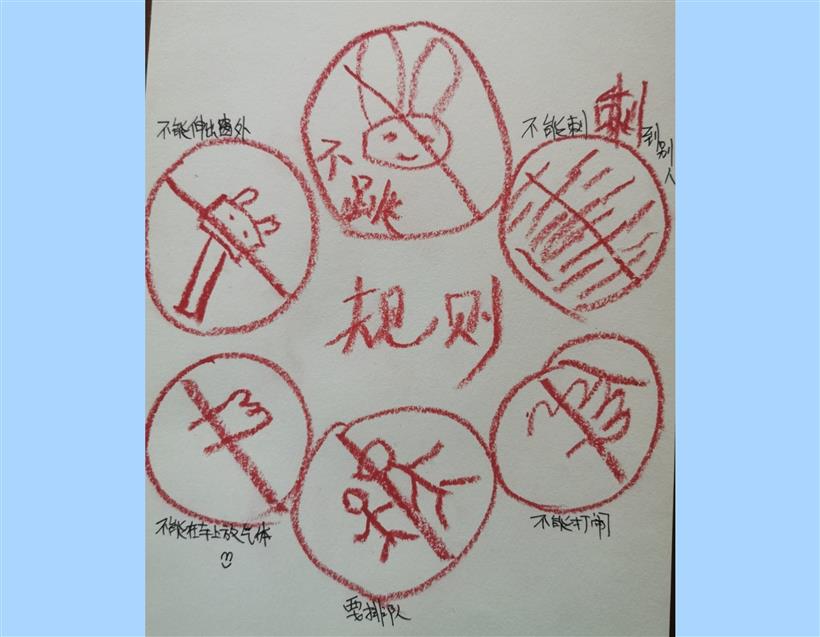 不能伸出窗外
不跳
不能刺刺到别人
规则
不能在车上放气体
要排队
不能打闹